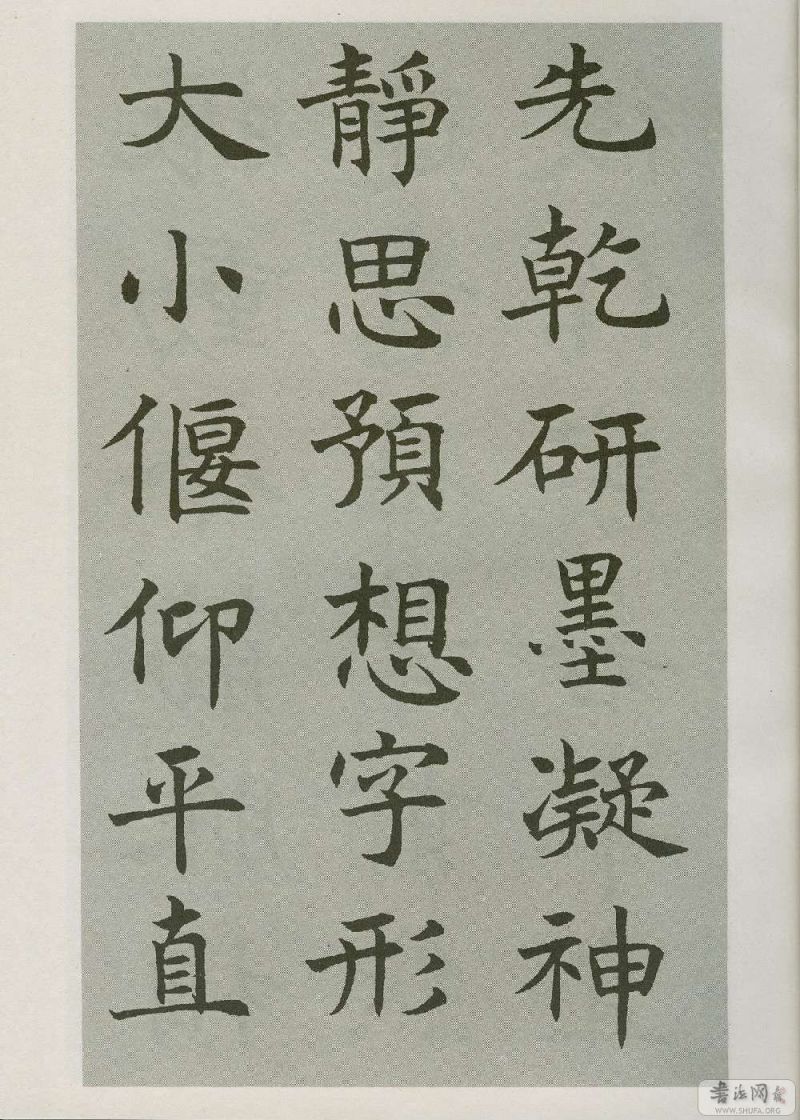 先乾研墨凝神
靜思預想字形
大小偃仰平直
書法网
WWW.SHUFA.ORG